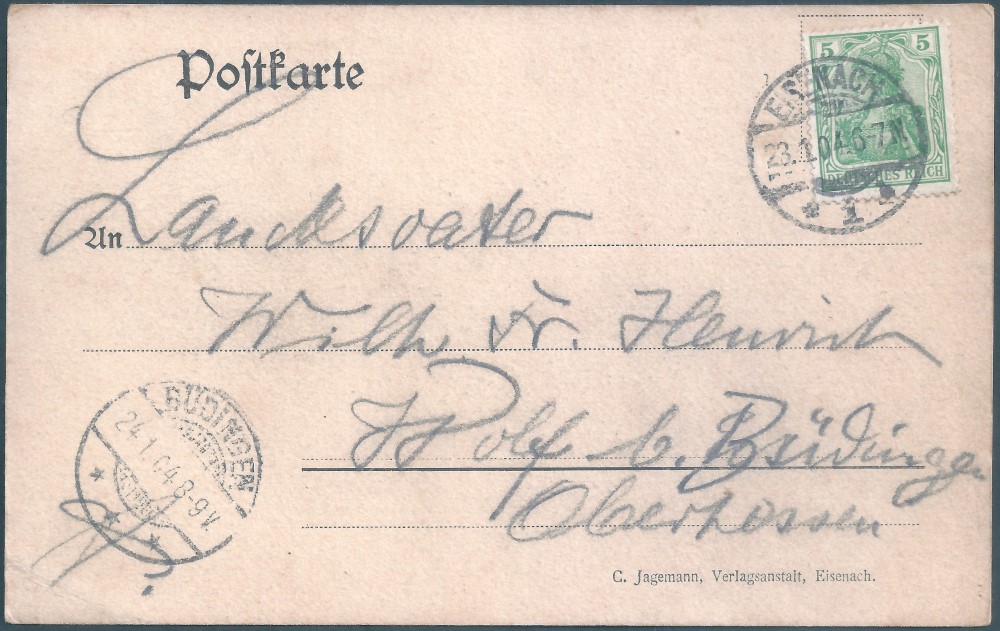 Postkarte
5 5
EISENACH
23.1.04.6-7N.
DEUTSCHES REICH
* 1 *
An Landesvater
Wilh Fr. Henrich
Wolf b. Büdingen
Oberhessen
BÜDINGEN
24.1.04.8-9V
C. Jagemann, Verlagsanstalt, Eisenach.